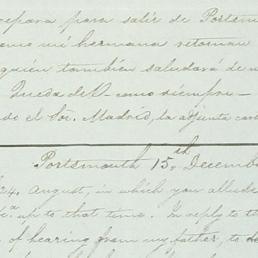 epara para salir de Portsm
como mi hermana retornan
quien tambien saludará de m
Queda de V. como siempre
el Sor. Madrid, la adjunta car
Portsmouth 15th Decembe
24. August, in which you allude
up to that time. In reply to th
of hearing from my father, to